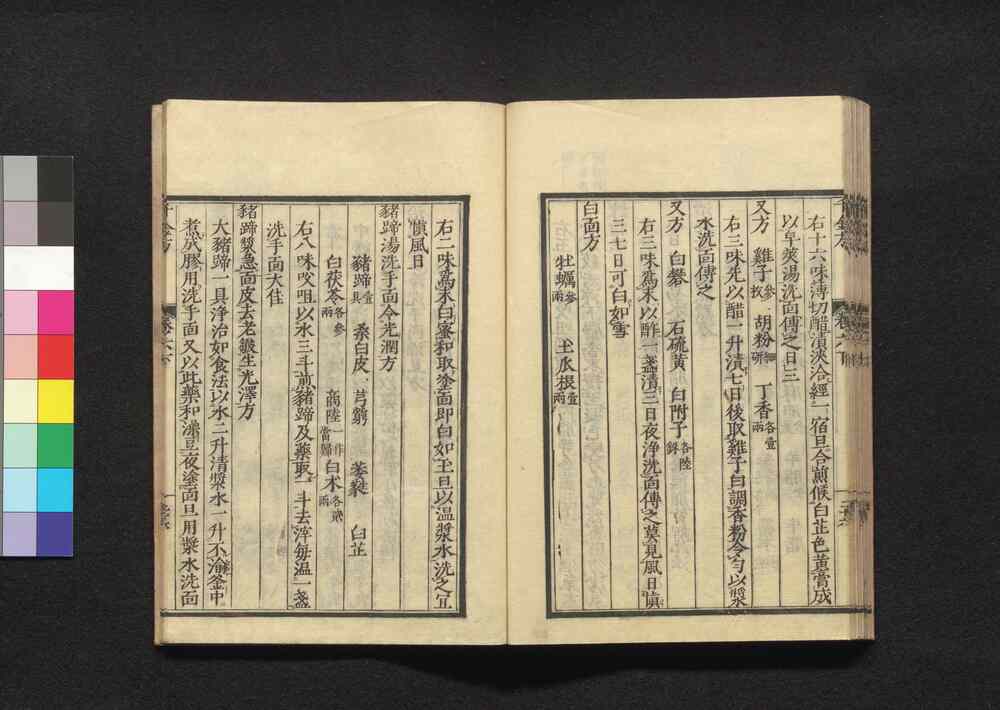 右十六味薄切醋漬浹洽經一宿旦合煎候白芷色黃膏成
以皁莢湯洗面傅之日三
又方 雞子三枚 胡粉 研 丁香各壹兩
右三味先以醋一升漬七日後取雞子白調香粉令勻以漿
水洗面傅之
又方 白礬 石硫黃 白附子各陸銖
右三味爲末以酢一盞漬三日夜淨洗面傅之莫見風日愼
三七日可白如雪
白面方
牡蠣叄兩 土瓜根壹兩
右二味爲末白蜜和取塗面即白如玉旦以溫漿水洗之宜
愼風日
豬蹄湯洗手面令光潤方
豬蹄壹具 桑白皮 芎藭 葳蕤 白芷
白茯苓各叄兩 商陸一作當歸 白朮各貳兩
右八味㕮咀以水三斗煎豬蹄及藥取一斗去滓每溫一盞
洗手面大佳
豬蹄漿急面皮去老皺生光澤方
大豬蹄一具淨治如食法以水二升清漿水一升不渝釜中
煮成膠用洗手面又以此藥和澡豆夜塗面旦用漿水洗面